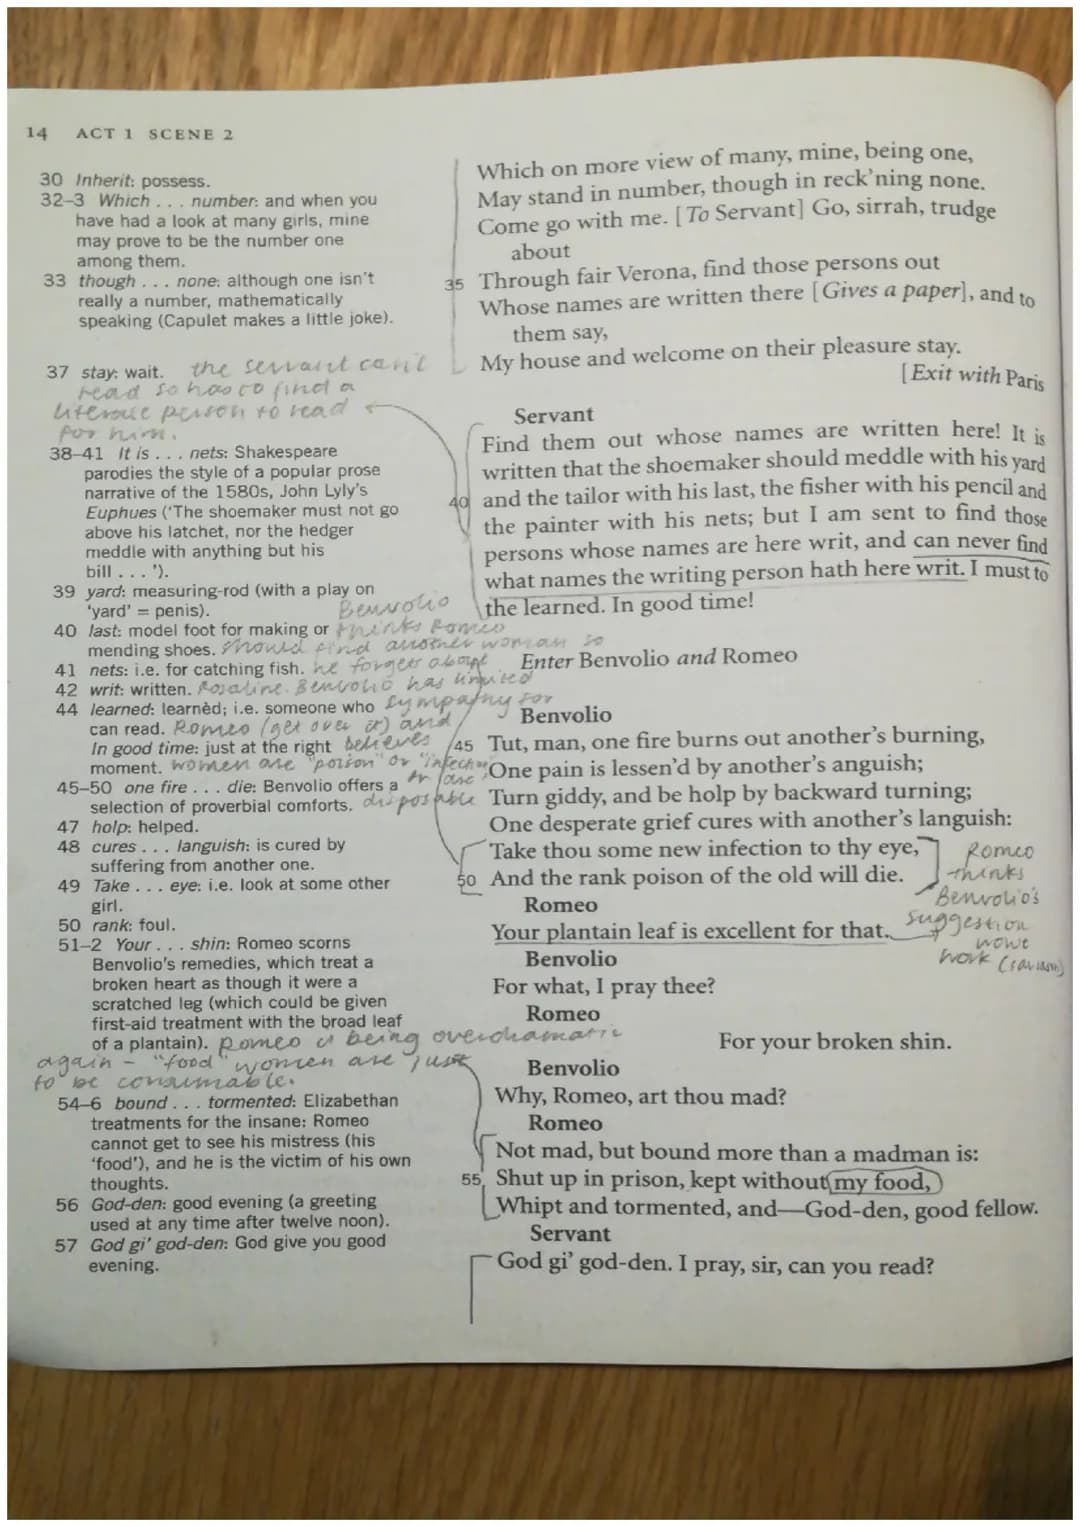 14 ACT 1 SCENE 2
30 Inherit: possess.
32–3 Which . . . number: and when you
have had a look at many girls, mine
may prove to be the number one
among them.
33 though . . . none: although one isn't
really a number, mathematically
speaking (Capulet makes a little joke).
37 stay: wait. the servant can't
read so has to find a
literate person to read
for him.
38–41 It is . . . nets: Shakespeare
parodies the style of a popular prose
narrative of the 1580s, John Lyly's
Euphues ('The shoemaker must not go
above his latchet, nor the hedger
meddle with anything but his
bill . . . ').
39 yard: measuring-rod (with a play on
'yard' = penis). Benvolio
40 last: model foot for making or thinks Romeo
mending shoes. should find another woman so
41 nets: i.e. for catching fish. he forgets about
42 writ: written. Rosaline. Benvolio has limited
44 learned: learnèd; i.e. someone who sympathy for
can read. Romeo (get over it) and
In good time: just at the right believes
moment. women are "poison" or "infection"
45–50 one fire . . . die: Benvolio offers a or are
selection of proverbial comforts. disposable
47 holp: helped.
48 cures . . . languish: is cured by
suffering from another one.
49 Take . . . eye: i.e. look at some other
girl.
50 rank: foul.
51–2 Your . . . shin: Romeo scorns
Benvolio's remedies, which treat a
broken heart as though it were a
scratched leg (which could be given
first-aid treatment with the broad leaf
of a plantain). Romeo is being overdramatic
again – "food" women are just
to be consumable.
54–6 bound . . . tormented: Elizabethan
treatments for the insane: Romeo
cannot get to see his mistress (his
'food'), and he is the victim of his own
thoughts.
56 God-den: good evening (a greeting
used at any time after twelve noon).
57 God gi' god-den: God give you good
evening.
Which on more view of many, mine, being one,
May stand in number, though in reck'ning none.
Come go with me. [To Servant] Go, sirrah, trudge
about
35 Through fair Verona, find those persons out
Whose names are written there [Gives a paper], and to
them say,
My house and welcome on their pleasure stay.
[Exit with Paris
Servant
Find them out whose names are written here! It is
written that the shoemaker should meddle with his yard
40 and the tailor with his last, the fisher with his pencil and
the painter with his nets; but I am sent to find those
persons whose names are here writ, and can never find
what names the writing person hath here writ. I must to
the learned. In good time!
Enter Benvolio and Romeo
Benvolio
45 Tut, man, one fire burns out another's burning,
One pain is lessen'd by another's anguish;
Turn giddy, and be holp by backward turning;
One desperate grief cures with another's languish:
Take thou some new infection to thy eye,
50 And the rank poison of the old will die.
Romeo
thinks
Benvolio's
suggestion
wont
work (sarcasm)
Romeo
Your plantain leaf is excellent for that.
Benvolio
For what, I pray thee?
Romeo
For your broken shin.
Benvolio
Why, Romeo, art thou mad?
Romeo
Not mad, but bound more than a madman is:
55 Shut up in prison, kept without my food,
Whipt and tormented, and—God-den, good fellow.
Servant
God gi' god-den. I pray, sir, can you read?